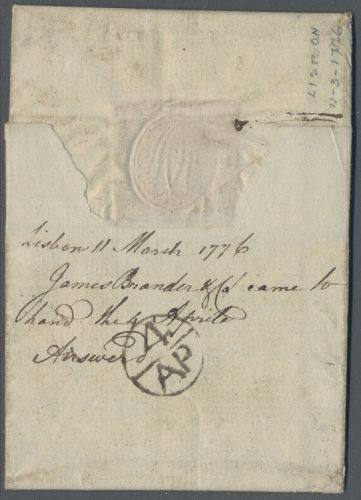 LISBON
11-3-1776
Lisbon 11 March 1776
James Brander & Co came to
hand the 4 Aprile
Answerd
4
AP